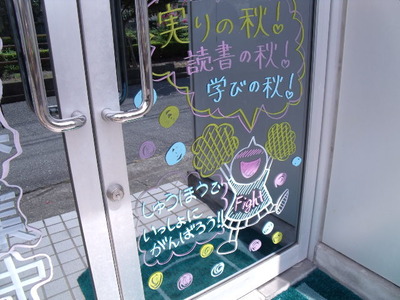 実りの秋!
読書の秋!
学びの秋!
しゅうほうで
いっしょに
がんばろう!!
Fight